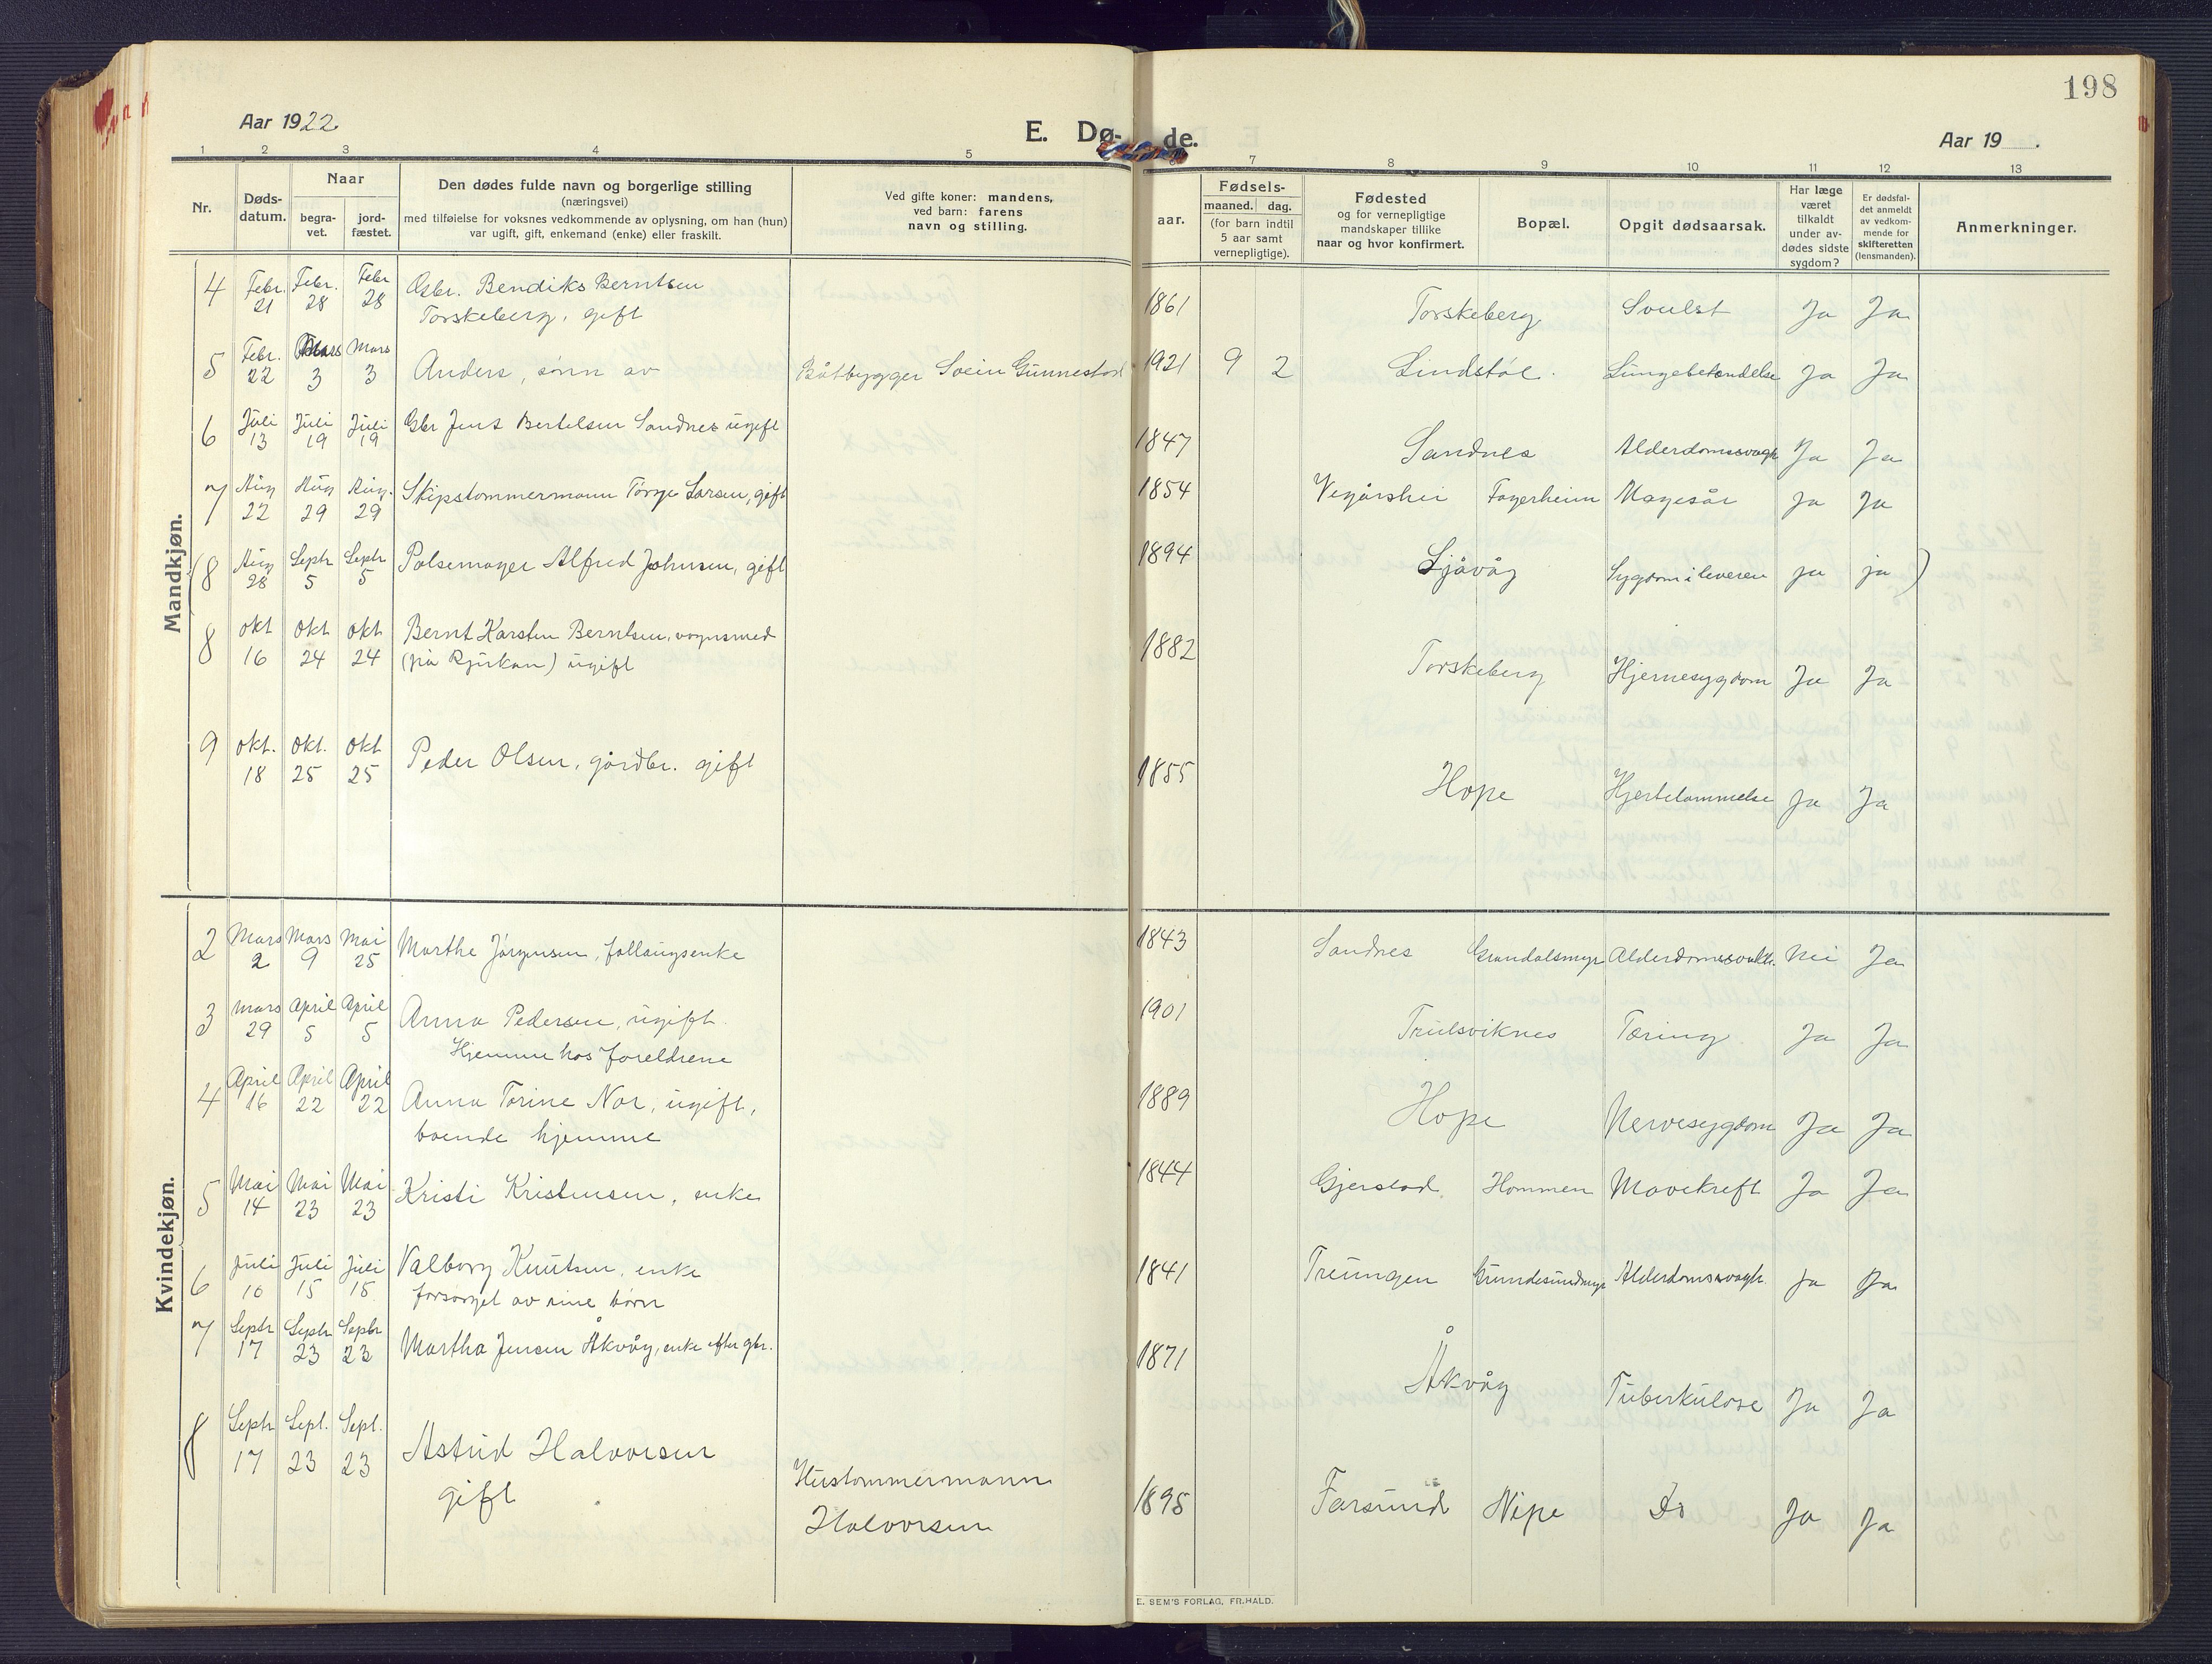 198
Aar 1922
E. Dø- de.
Aar 19
1 2 3 4 5 7 8 9 10 11 12 13
Nr.
Døds-
datum.
Naar
begra-
vet.
jord-
fæstet.
Den dødes fulde navn og borgerlige stilling
(næringsvei)
med tilføielse for voksnes vedkommende av oplysning, om han (hun)
var ugift, gift, enkemand (enke) eller fraskilt.
Ved gifte koner: mandens,
ved barn: farens
navn og stilling.
aar.
Fødsels-
maaned. dag.
(for barn indtil
5 aar samt
vernepligtige).
Fødested
og for vernepligtige
mandskaper tillike
naar og hvor konfirmert.
Bopæl.
Opgit dødsaarsak.
Har læge
været
tilkaldt
under av-
dødes sidste
sygdom?
Er dødsfal-
det anmeldt
av vedkom-
mende for
skifteretten
(lensmanden).
Anmerkninger.
Mandkjøn.
4 Febr. 21 Febr. 28 Febr 28 Gbr. Bendiks Berntsen
Torskeberg, gift 1861 Torskeberg Svulst Ja Ja
5 Febr. 22 Mars 3 Mars 3 Anders, sønn av Båtbygger Svein Gunnestad 1921 9 2 Lindstøl. Lungebetændelse Ja Ja
6 Juli 13 Juli 19 Juli 19 Gbr Jens Bertelsen Sandnes ugift 1847 Sandnes Alderdomssvagh Ja Ja
7 Aug 22 Aug 29 Aug. 29 Skipstømmermann Tørge Larsen, gift 1854 Vegårshei Fagerheim Magesår Ja Ja
(8 Aug 28 Septr 5 Septr 5 Pølsemager Alfred Johnsen, gift 1894 Ljåvåg Sygdom i leveren ja ja )
8 Okt 16 Okt 24 Okt 24 Bernt Karsten Berntsen, vognsmed
(på Rjukan) ugift 1882 Torskeberg Hjernesygdom Ja Ja
9 Okt. 18 Okt. 25 Okt 25 Peder Olsen, gårdbr. gift 1855 Hope Hjertelammelse Ja Ja
Kvindekjøn.
2 Mars 2 Mars 9 Mai 25 Marthe Jørgensen, fattigenke 1843 Sandnes Alderdomssvakh. Nei Ja
3 Mars 29 April 5 April 5 Anna Pedersen, ugift.
Hjemme hos foreldrene 1901 Trulsviknes Tæring Ja Ja
4 April 16 April 22 April 22 Anna Torine Nor, ugift,
boende hjemme 1889 Hope Nervesygdom Ja Ja
5 Mai 14 Mai 23 Mai 23 Kristi Kristensen, enke 1844 Gjerstad. Hommen Mavekreft Ja Ja
6 Juli 10 Juli 15 Juli 15 Valborg Knutsen, enke
forsørget av sine børn 1841 Treungen Grundesundmyr Alderdomssvagh. Ja Ja
7 Septr 17 Septr 23 Septbr 23 Martha Jensen Åkvåg, enke efter gbr. 1871 Åkvåg Tuberkulose Ja Ja
8 Septr 17 Sept. 23 Sept. 23 Astrid Halvorsen
gift Hustømmermann
Halvorsen 1895 Farsund Nipe Do Ja Ja
E. SEM'S FORLAG, FR.HALD.